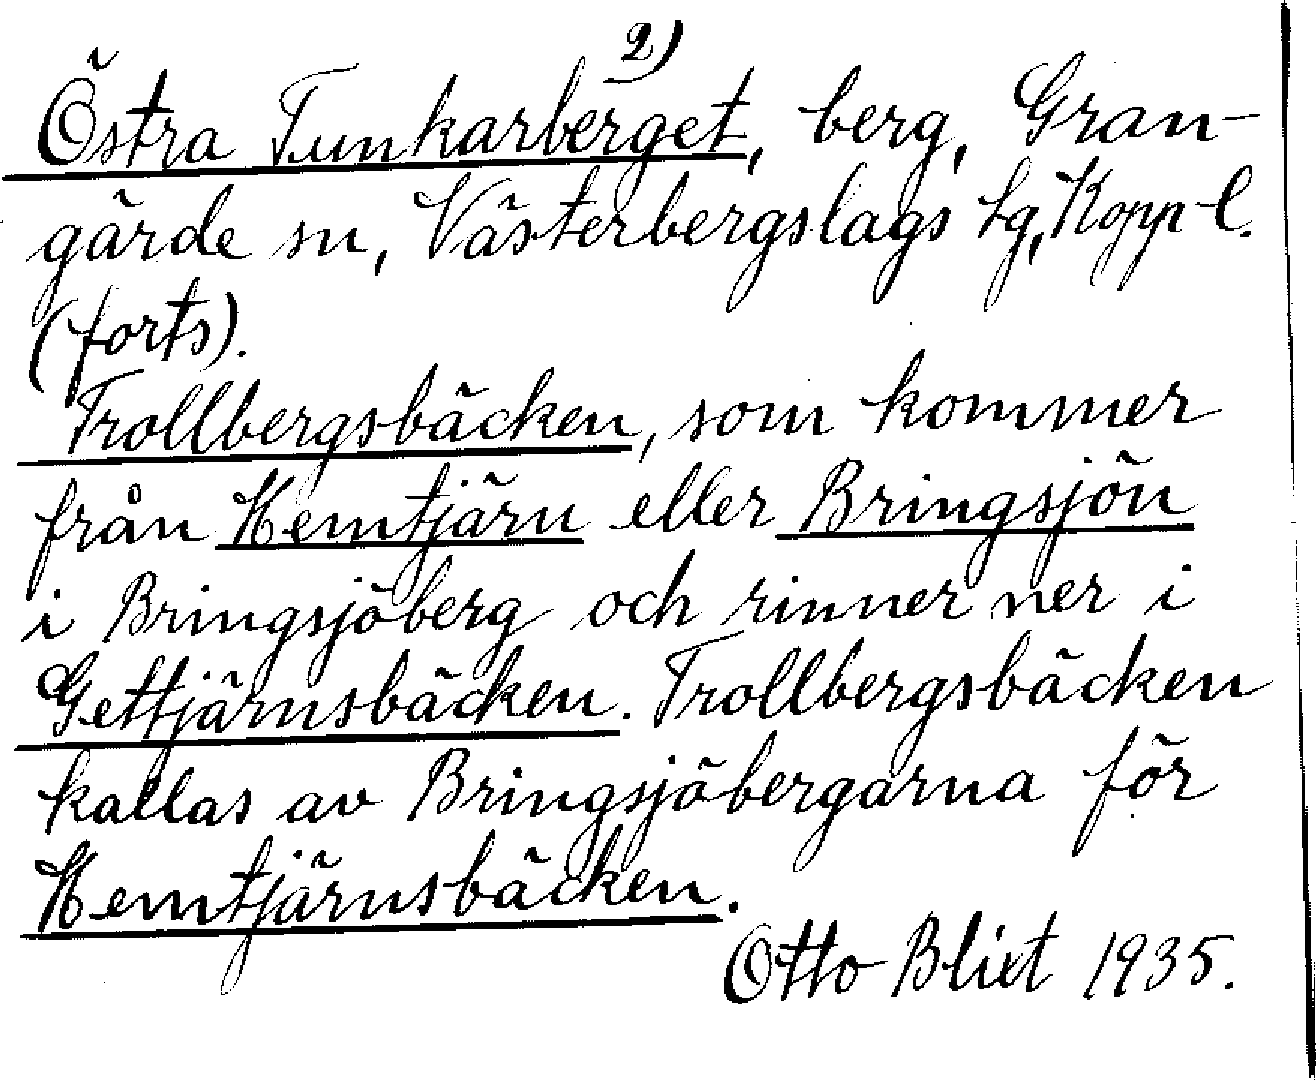 2)
Östra Tunkarberget, berg, Gran-
gärde sn, Västerbergslags tg, Kopp l.
(forts).
Trollbergsbäcken, som kommer
från Hemtjärn eller Bringsjön
i Bringsjöberg och rinner ner i
Gettjärnsbäcken. Trollbergsbäcken
kallas av Bringsjöbergarna för
Hemtjärnsbäcken.
Otto Blixt 1935.